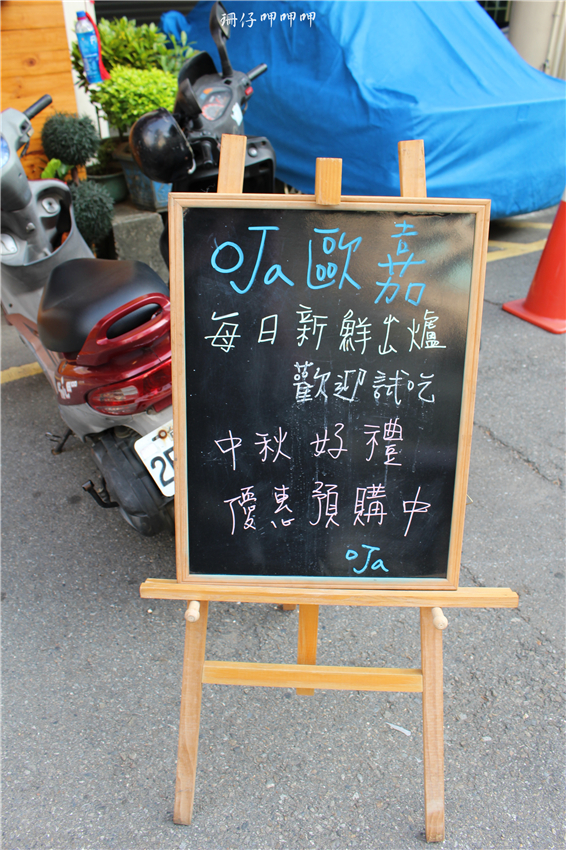 珊仔呷呷呷
oJa歐嘉
每日新鮮出爐
歡迎試吃
中秋好禮
優惠預購中
oJa